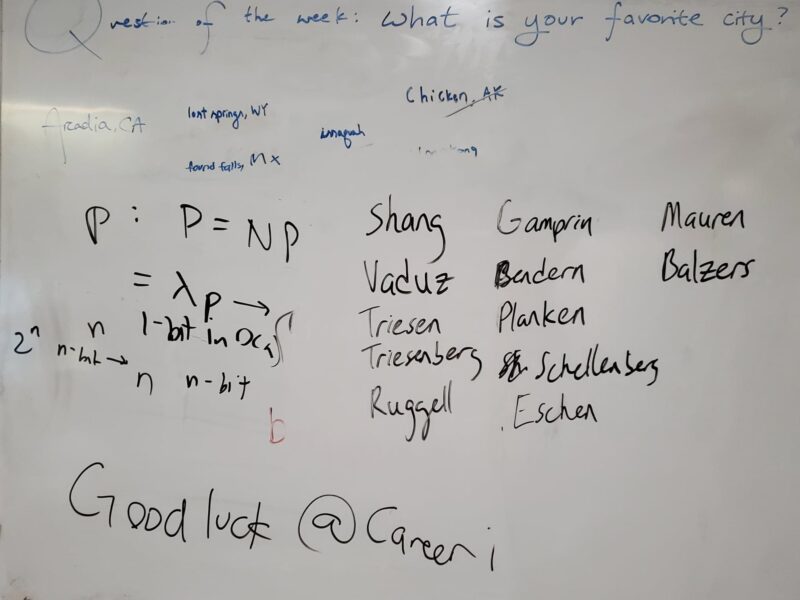 Question of the week: What is your favorite city?
Chicken, AK
Arcadia, CA
lost springs, WY
issaquah
found falls, MX
P : P = NP
= λp →
1-bit in
2ⁿ n
n-bit →
n n-bit
b
Shang Gamprin Mauren
Vaduz Bendern Balzers
Triesen Planken
Triesenberg Schellenberg
Ruggell Eschen
Good luck @ Career